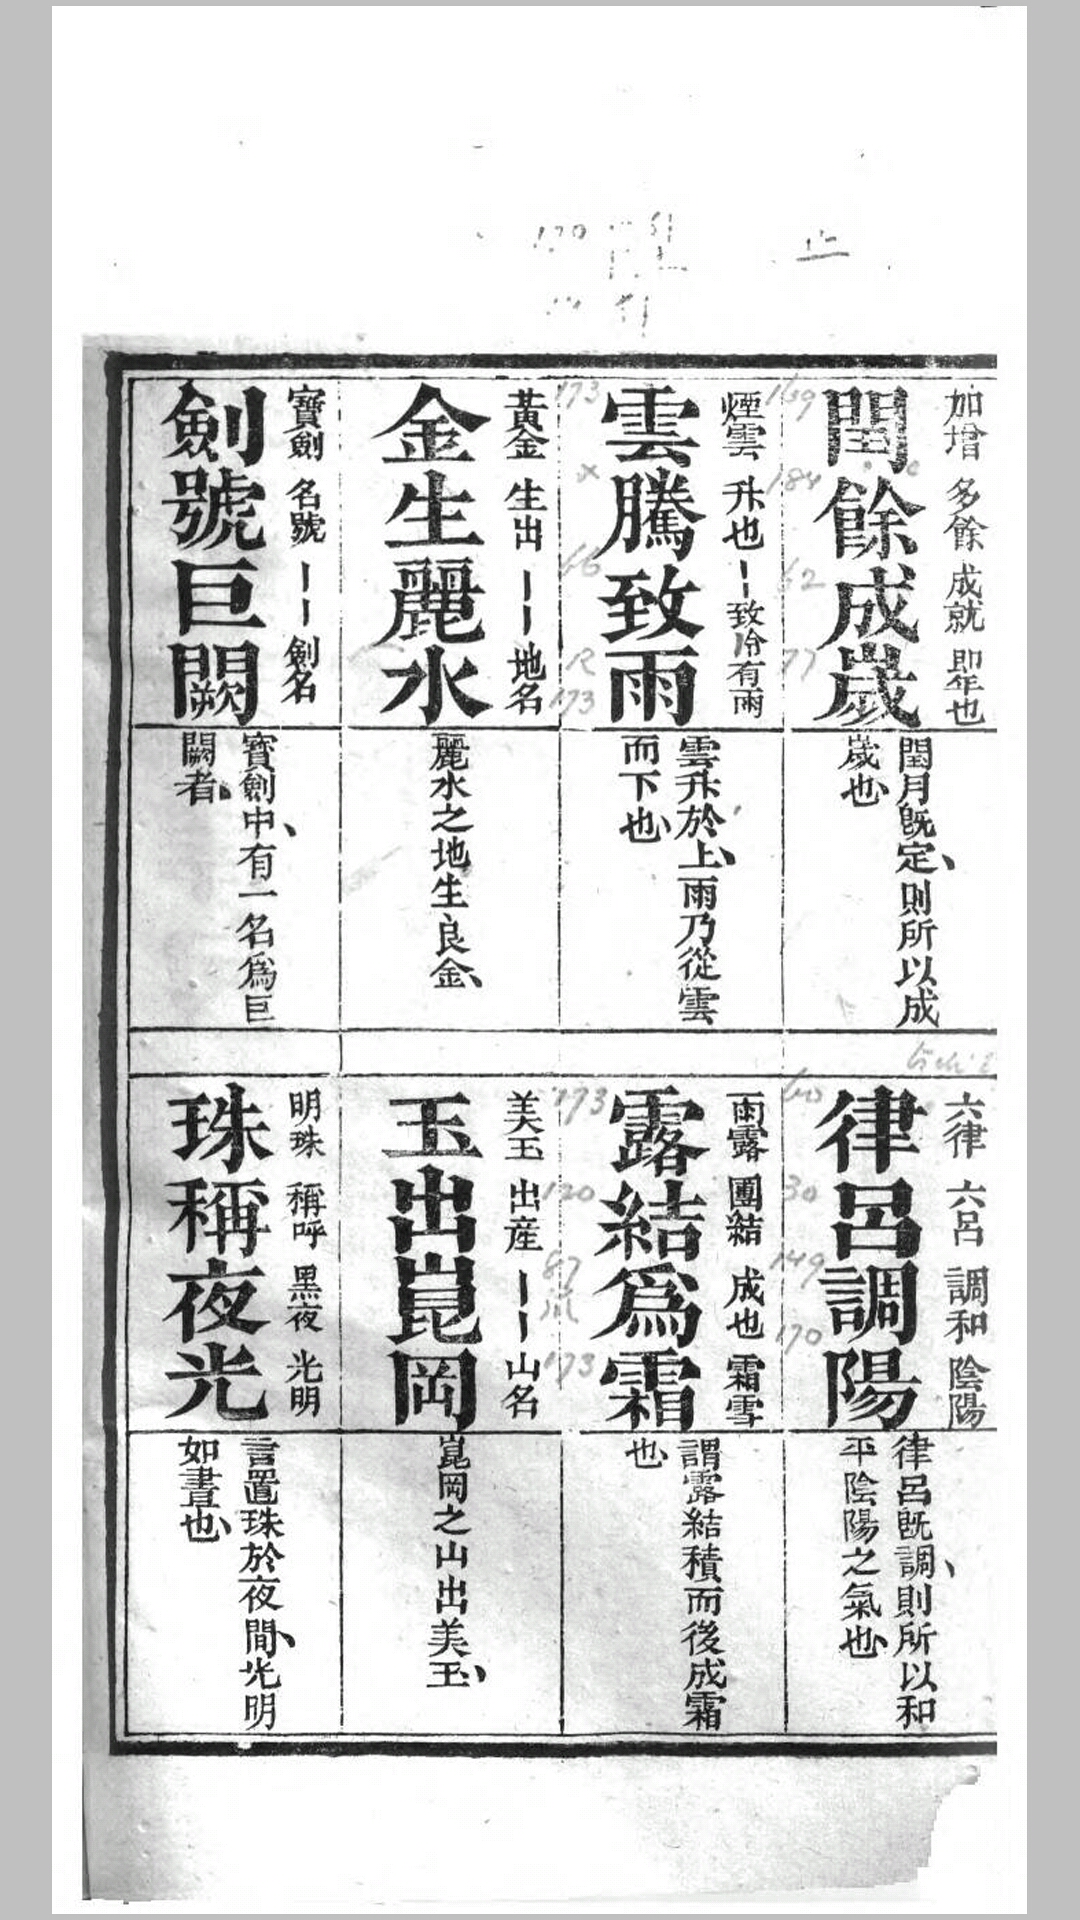 加增 多餘 成就 卽年也
閏餘成歲
閏月旣定、則所以成
歲也、
煙雲 升也 〡〡致份有雨
雲騰致雨
雲升於上、雨乃從雲
而下也、
黃金 生出 〡〡地名
金生麗水
麗水之地生良金、
寶劍 名號 〡〡劍名
劍號巨闕
寶劍中、有一名爲巨
闕者、
六律 六呂 調和 陰陽
律呂調陽
律呂旣調、則所以和
平陰陽之氣也、
雨露 團結 成也 霜雪
露結爲霜
謂露結積而後成霜
也、
美玉 出產 〡〡山名
玉出崑岡
崑岡之山出美玉、
明珠 稱呼 黑夜 光明
珠稱夜光
言置珠於夜間、光明
如晝也、
173
169
184
66
62
77
173
173
60
120
30
87
149
170
173